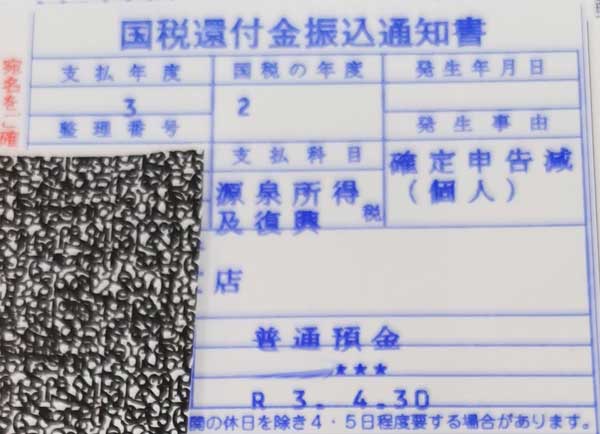 国税還付金振込通知書
支払年度 国税の年度 発生年月日
3 2
整理番号 発生事由
支払科目 確定申告減
源泉所得 （個人）
及復興 税
店
普通預金
★★★
R 3. 4.30
関の休日を除き4・5日程度要する場合があります。
宛名をご確